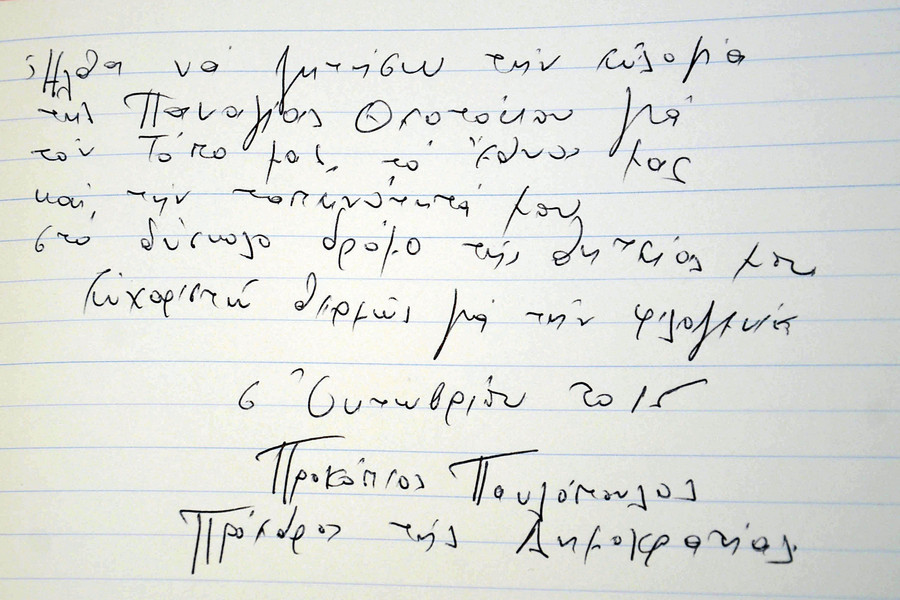 Ἦλθα νά ζητήσω τήν εὐλογία
τῆς Παναγίας Θεοτόκου γιά
τόν Τόπο μας, τό Ἔθνος μας
καί τήν ταπεινότητά μου
στό δύσκολο δρόμο τῆς θητείας μου
Εὐχαριστῶ θερμῶς γιά τήν φιλοξενία
6 Ὀκτωβρίου 2015
Προκόπιος Παυλόπουλος
Πρόεδρος τῆς Δημοκρατίας